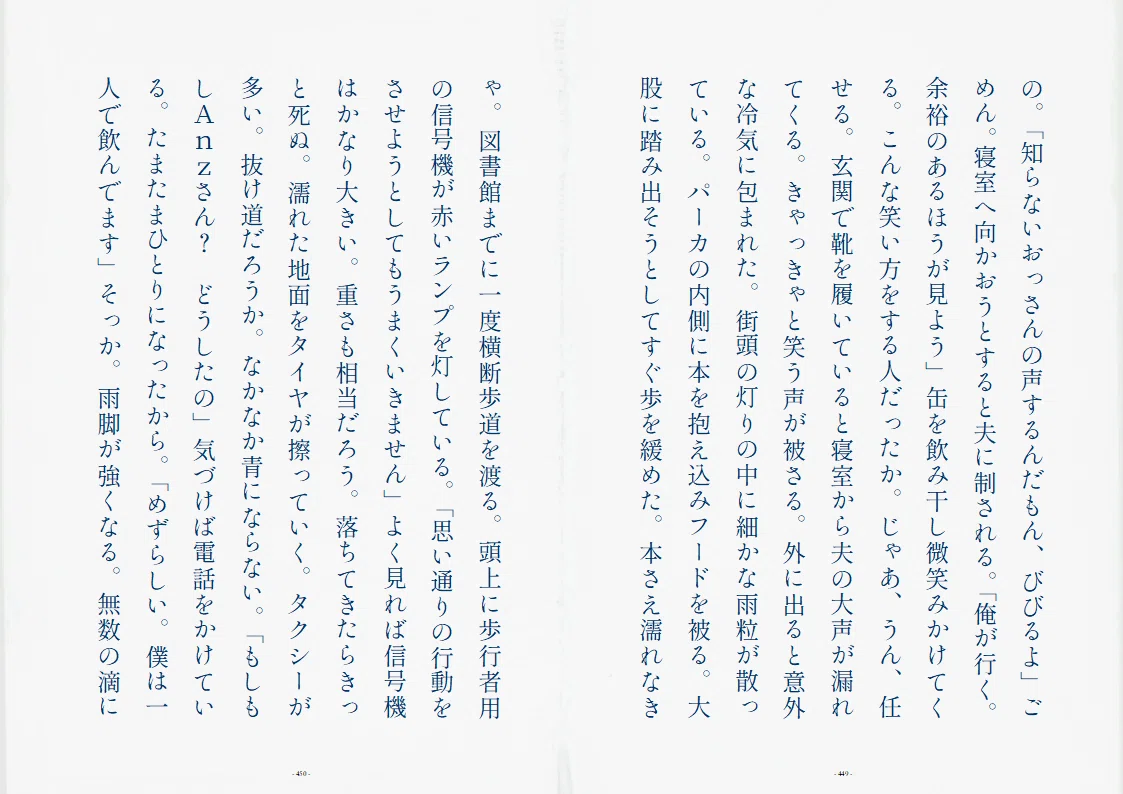 の。「知らないおっさんの声するんだもん、びびるよ」ご
めん。寝室へ向かおうとすると夫に制される。「俺が行く。
余裕のあるほうが見よう」缶を飲み干し微笑みかけてく
る。こんな笑い方をする人だったか。じゃあ、うん、任
せる。玄関で靴を履いていると寝室から夫の大声が漏れ
てくる。きゃっきゃと笑う声が被さる。外に出ると意外
な冷気に包まれた。街頭の灯りの中に細かな雨粒が散っ
ている。パーカの内側に本を抱え込みフードを被る。大
股に踏み出そうとしてすぐ歩を緩めた。本さえ濡れなき
- 449 -
ゃ。図書館までに一度横断歩道を渡る。頭上に歩行者用
の信号機が赤いランプを灯している。「思い通りの行動を
させようとしてもうまくいきません」よく見れば信号機
はかなり大きい。重さも相当だろう。落ちてきたらきっ
と死ぬ。濡れた地面をタイヤが擦っていく。タクシーが
多い。抜け道だろうか。なかなか青にならない。「もしも
しＡｎｚさん？　どうしたの」気づけば電話をかけてい
る。たまたまひとりになったから。「めずらしい。僕は一
人で飲んでます」そっか。雨脚が強くなる。無数の滴に
- 450 -